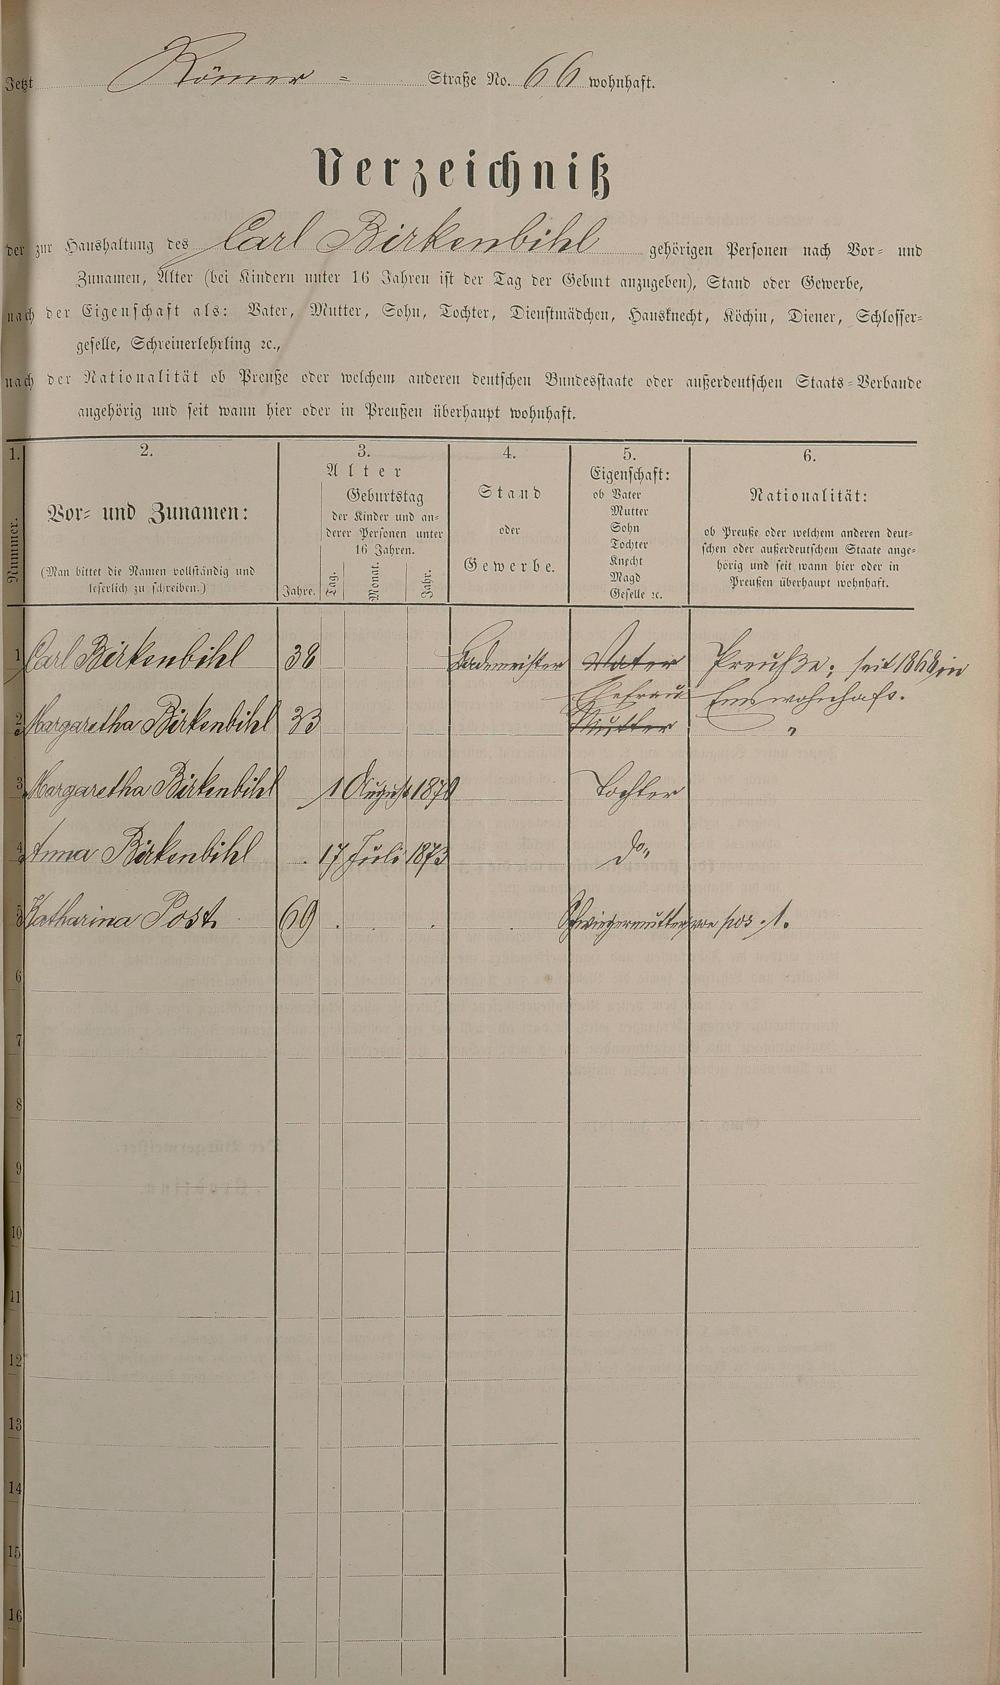 Jetzt Römer- Straße No. 66 wohnhaft.
Verzeichniß
der zur Haushaltung des Carl Birkenbihl gehörigen Personen nach Vor- und
Zunamen, Alter (bei Kindern unter 16 Jahren ist der Tag der Geburt anzugeben), Stand oder Gewerbe,
nach der Eigenschaft als: Vater, Mutter, Sohn, Tochter, Dienstmädchen, Hausknecht, Köchin, Diener, Schlosser-
geselle, Schreinerlehrling ꝛc.,
nach der Nationalität ob Preuße oder welchem anderen deutschen Bundesstaate oder außerdeutschen Staats-Verbande
angehörig und seit wann hier oder in Preußen überhaupt wohnhaft.
1.
Nummer.
2.
Vor- und Zunamen:
(Man bittet die Namen vollständig und
leserlich zu schreiben.)
3.
Alter
Jahre.
Geburtstag
der Kinder und an-
derer Personen unter
16 Jahren.
Tag.
Monat.
Jahr.
4.
Stand
oder
Gewerbe.
5.
Eigenschaft:
ob Vater
Mutter
Sohn
Tochter
Knecht
Magd
Geselle ꝛc.
6.
Nationalität:
ob Preuße oder welchem anderen deut-
schen oder außerdeutschem Staate ange-
hörig und seit wann hier oder in
Preußen überhaupt wohnhaft.
1 Carl Birkenbihl 38 Bademeister Vater Preuße; seit 1868 in
Ehefrau Ems wohnhaft.
2 Margaretha Birkenbihl 33 Mutter "
3 Margaretha Birkenbihl 1 August 1870 Tochter
4 Anna Birkenbihl 17 Juli 1873 do
5 Katharina Post 69 Schwiegermutter von pos. 1.
6
7
8
9
10
11
12
13
14
15
16